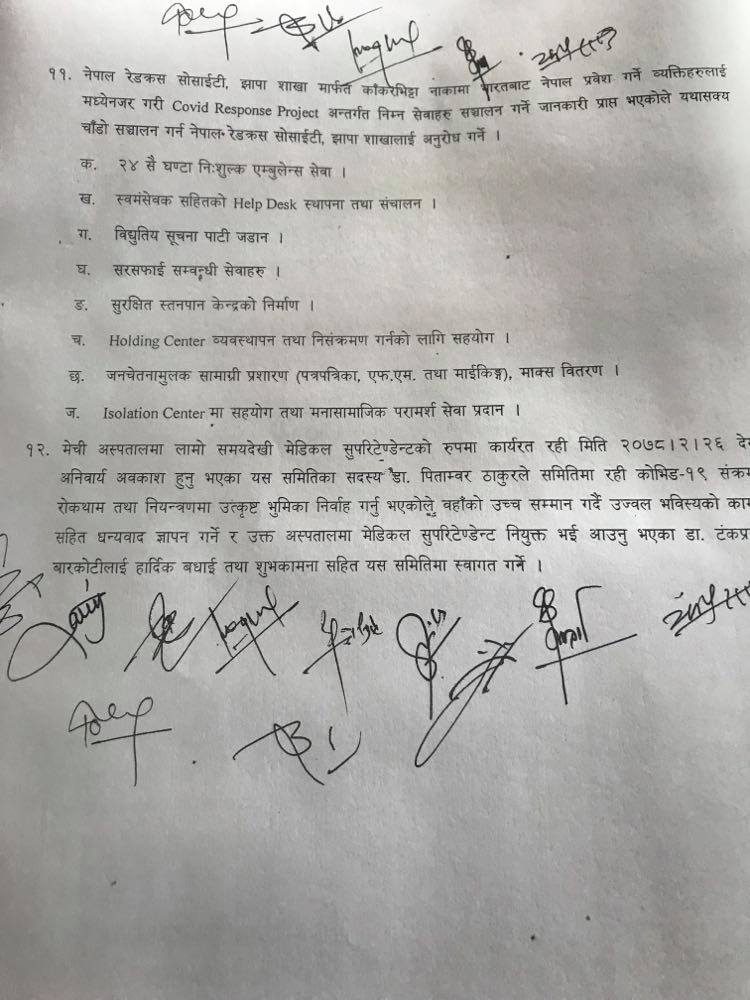 ११. नेपाल रेडक्रस सोसाईटी, झापा शाखा मार्फत काँकरभिट्टा नाकामा भारतबाट नेपाल प्रवेश गर्ने व्यक्तिहरुलाई
मध्येनजर गरी Covid Response Project अन्तर्गत निम्न सेवाहरु सञ्चालन गर्ने जानकारी प्राप्त भएकोले यथासक्य
चाँडो सञ्चालन गर्न नेपाल रेडक्रस सोसाईटी, झापा शाखालाई अनुरोध गर्ने ।
क. २४ सै घण्टा निःशुल्क एम्बुलेन्स सेवा ।
ख. स्वमंसेवक सहितको Help Desk स्थापना तथा संचालन ।
ग. विद्युतिय सूचना पाटी जडान ।
घ. सरसफाई सम्वन्धी सेवाहरु ।
ङ. सुरक्षित स्तनपान केन्द्रको निर्माण ।
च. Holding Center व्यवस्थापन तथा निसंक्रमण गर्नको लागि सहयोग ।
छ. जनचेतनामुलक सामाग्री प्रशारण (पत्रपत्रिका, एफ.एम. तथा माईकिङ्ग), माक्स वितरण ।
ज. Isolation Center मा सहयोग तथा मनासामाजिक परामर्श सेवा प्रदान ।
१२. मेची अस्पतालमा लामो समयदेखी मेडिकल सुपरिटेण्डेन्टको रुपमा कार्यरत रही मिति २०७८।२।२६
अनिवार्य अवकाश हुनु भएका यस समितिका सदस्य डा. पिताम्वर ठाकुरले समितिमा रही कोभिड-१९
रोकथाम तथा नियन्त्रणमा उत्कृष्ट भुमिका निर्वाह गर्नु भएकोले वहाँको उच्च सम्मान गर्दै उज्वल भविस्यको
सहित धन्यवाद ज्ञापन गर्ने र उक्त अस्पतालमा मेडिकल सुपरिटेण्डेन्ट नियुक्त भई आउनु भएका डा.
बारकोटीलाई हार्दिक बधाई तथा शुभकामना सहित यस समितिमा स्वागत गर्ने ।